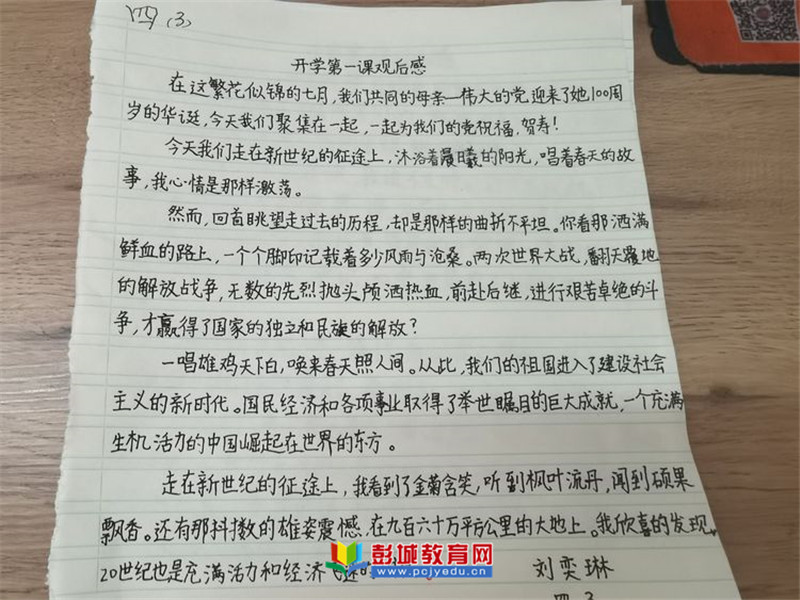 四(3)
开学第一课观后感
在这繁花似锦的七月,我们共同的母亲—伟大的党迎来了她100周
岁的华诞,今天我们聚集在一起,一起为我们的党祝福,贺寿!
今天我们走在新世纪的征途上,沐浴着晨曦的阳光,唱着春天的故
事,我心情是那样激荡。
然而,回首眺望走过去的历程,却是那样的曲折不平坦。你看那洒满
鲜血的路上,一个个脚印记载着多少风雨与沧桑。两次世界大战,翻天覆地
的解放战争,无数的先烈抛头颅洒热血,前赴后继,进行艰苦卓绝的斗
争,才赢得了国家的独立和民族的解放?
一唱雄鸡天下白,唤来春天照人间。从此,我们的祖国进入了建设社会
主义的新时代。国民经济和各项事业取得了举世瞩目的巨大成就,一个充满
生机活力的中国崛起在世界的东方。
走在新世纪的征途上,我看到了金菊含笑,听到枫叶流丹,闻到硕果
飘香。还有那抖擞的雄姿震憾,在九百六十万平方公里的大地上。我欣喜的发现,
20世纪也是充满活力和经济飞
刘奕琳
四 3
彭城教育网
www.pcjyedu.cn